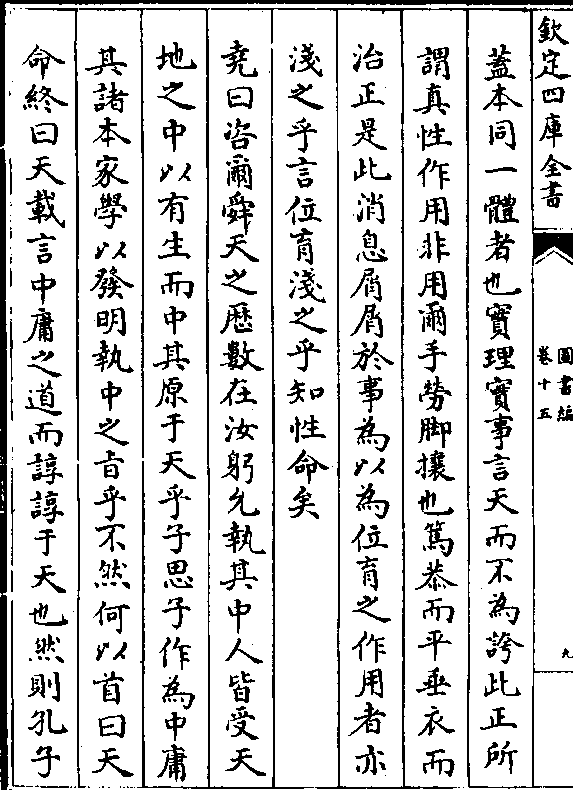 欽定四庫全書
圖書編
卷十五
九
蓋本同一體者也實理實事言天而不為誇此正所
謂真性作用非用爾手勞脚攘也篤恭而平垂衣而
治正是此消息屑屑於事為以為位育之作用者亦
淺之乎言位育淺之乎知性命矣
堯曰咨爾舜天之厯數在汝躬允執其中人皆受天
地之中以有生而中其原于天乎子思子作為中庸
其諸本家學以發明執中之㫖乎不然何以首曰天
命終曰天載言中庸之道而諄諄于天也然則孔子